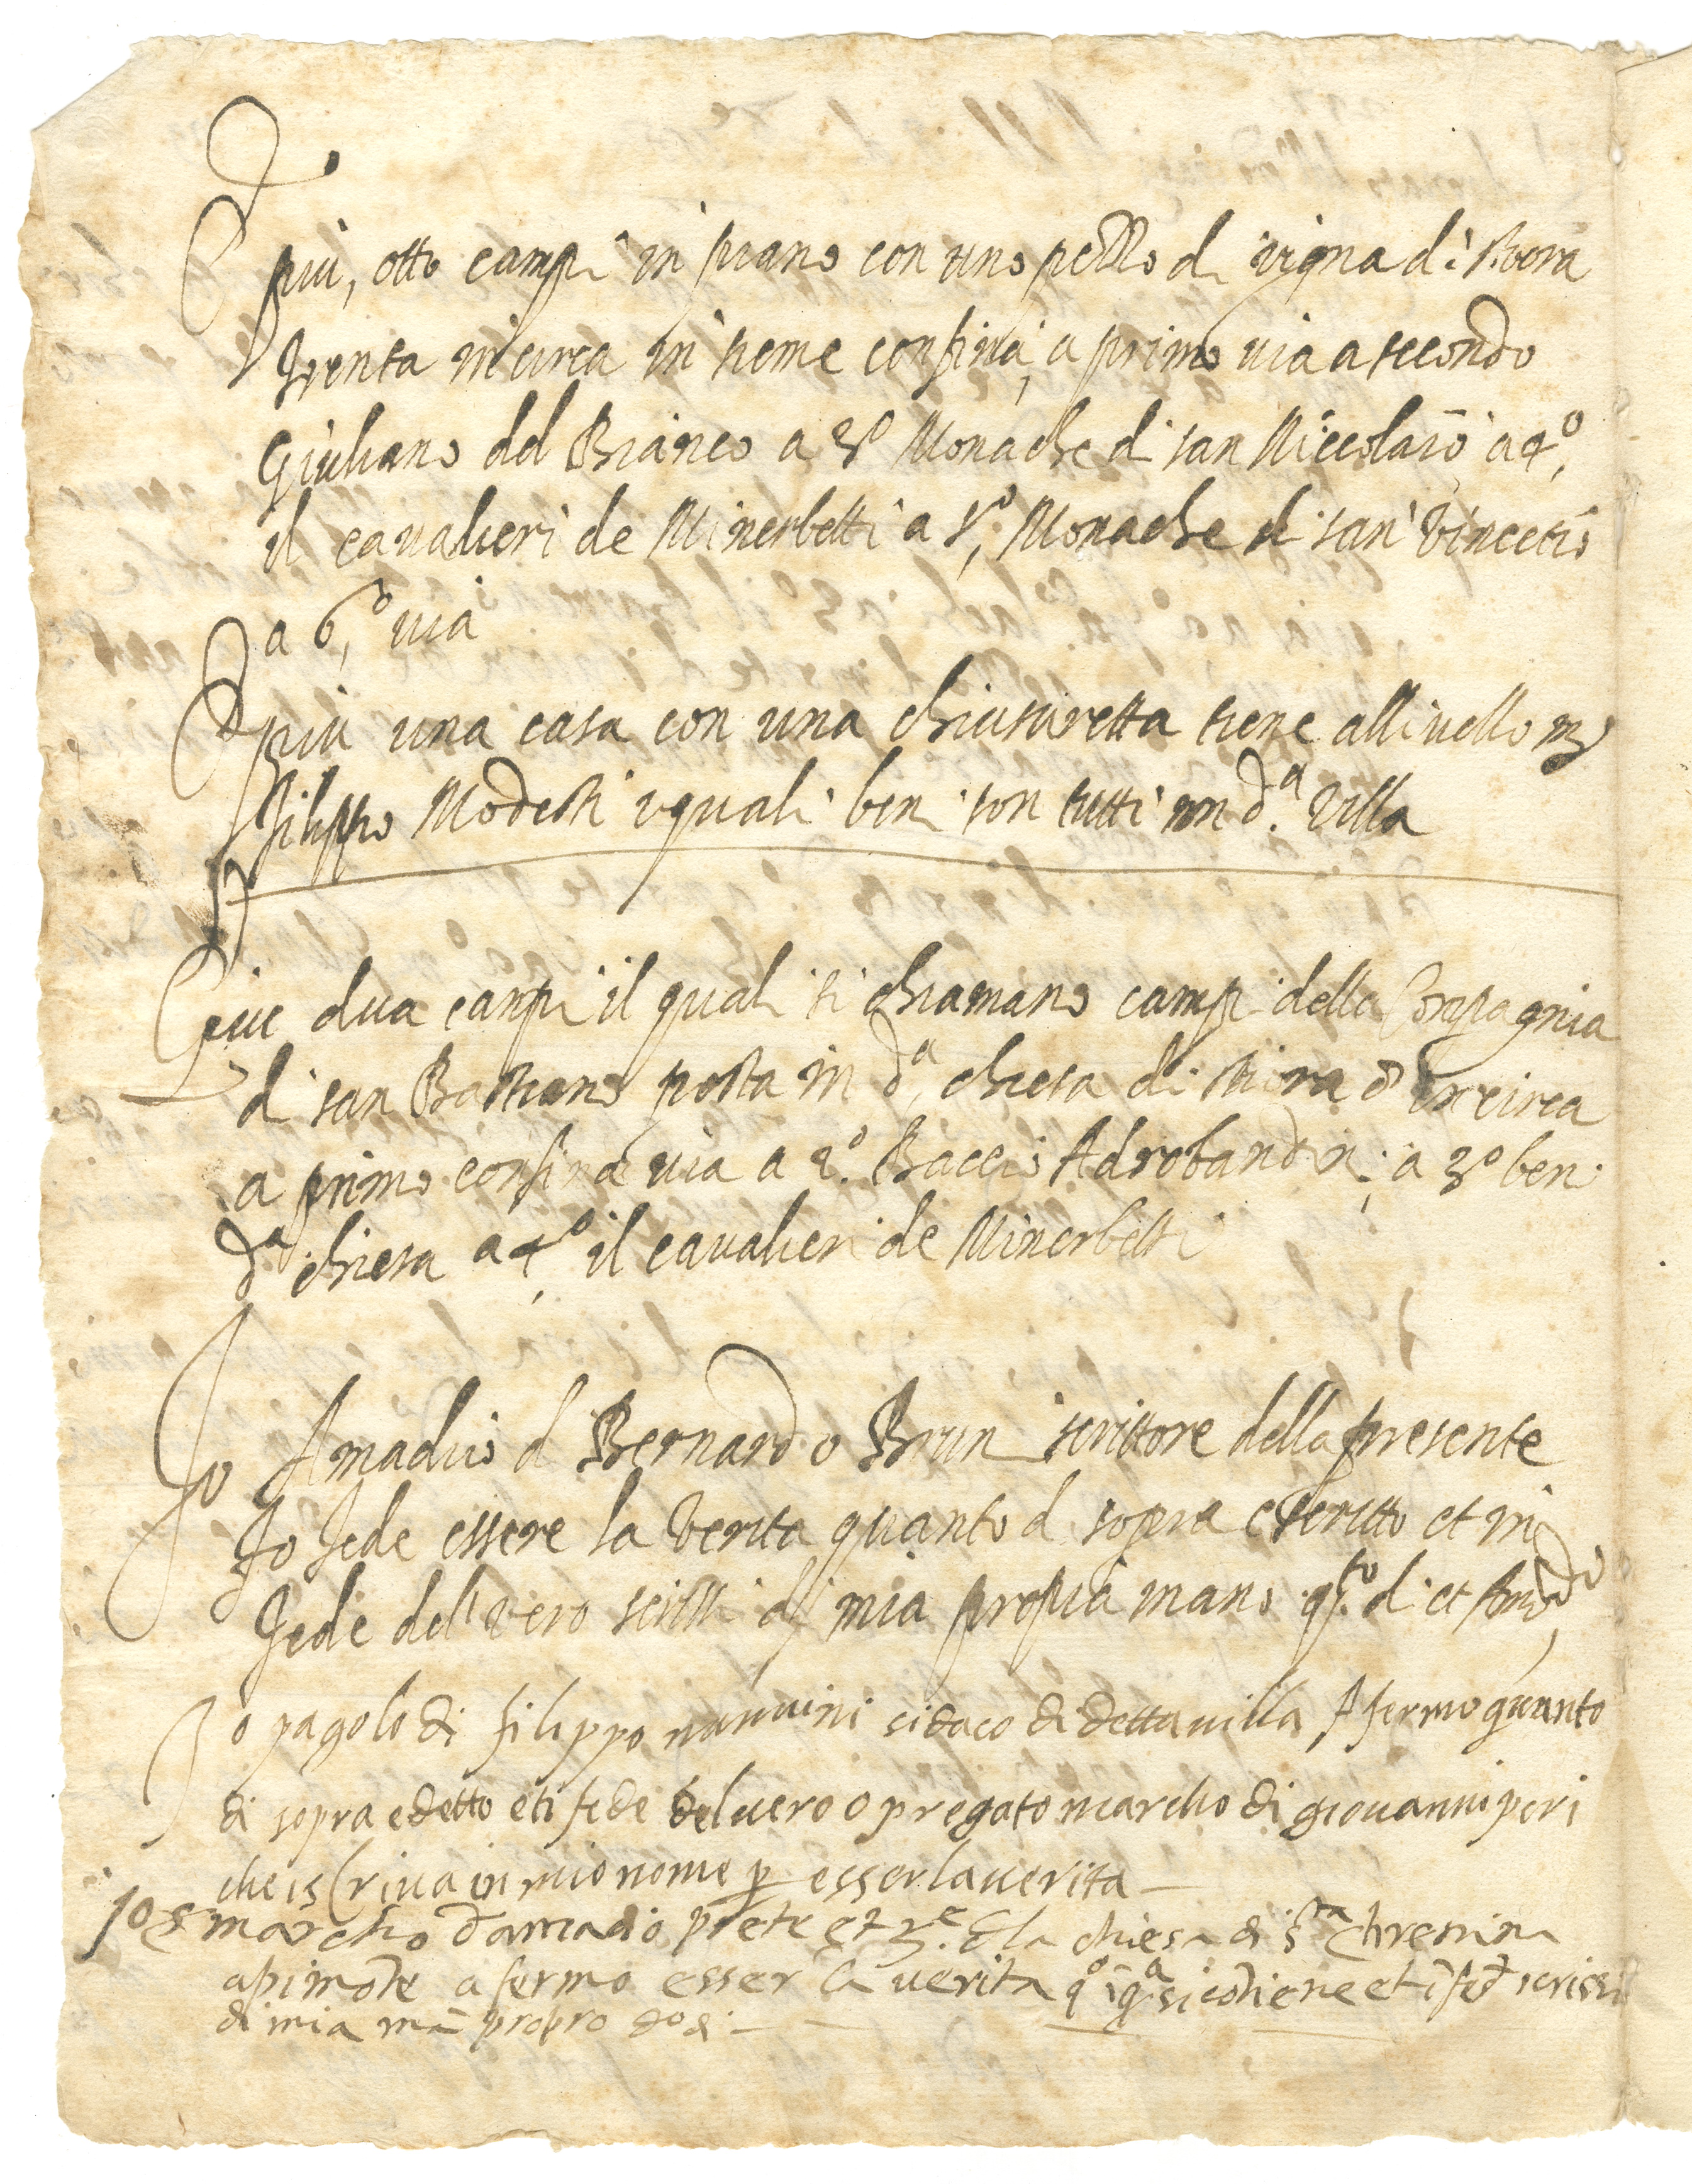 E più, otto campi in piano con uno pezzo di vigna di stiora
trenta in circa in sieme confina, a primo uia a secondo
Giuliano del Bianco a 3º Monache di san Niccolaio a 4º,
il caualieri de Minerbetti a 5º, Monache di san Vincetio
a 6º, uia
E più una casa con una chiusuretta tiene allivello
Filippo Modesti i quali beni son tutti in d.ª Villa
E piu dua canpi il quali si chiamano campi della Compagnia
di san Bastiano posta in d.ª chiesa di stiora 8 in circa
a primo confina uia a 2º. Baccio Adrobandini; a 3º beni
d.ª chiesa a 4º il caualieri de Minerbetti
Io Amadio d Bernardo Bruni scrittore della presente
fo fede essere la verita quanto d sopra e scritto et in
fede del vero scrissi di mia propia mano q.to di et
Io pagolo di filippo nannini sidaco di detta uilla Afermo quanto
di sopra e detto et i fede del uero o pregato marcho di giouanni peri
che iscriua in mio nome p esser la uerita
Io s marcho damadio prete et r.e d la chiesa di s.ta chrestina
apimote afermo esser la uerita q.º i q.ª si cotiene et i fed scrissi
di mia mā propro